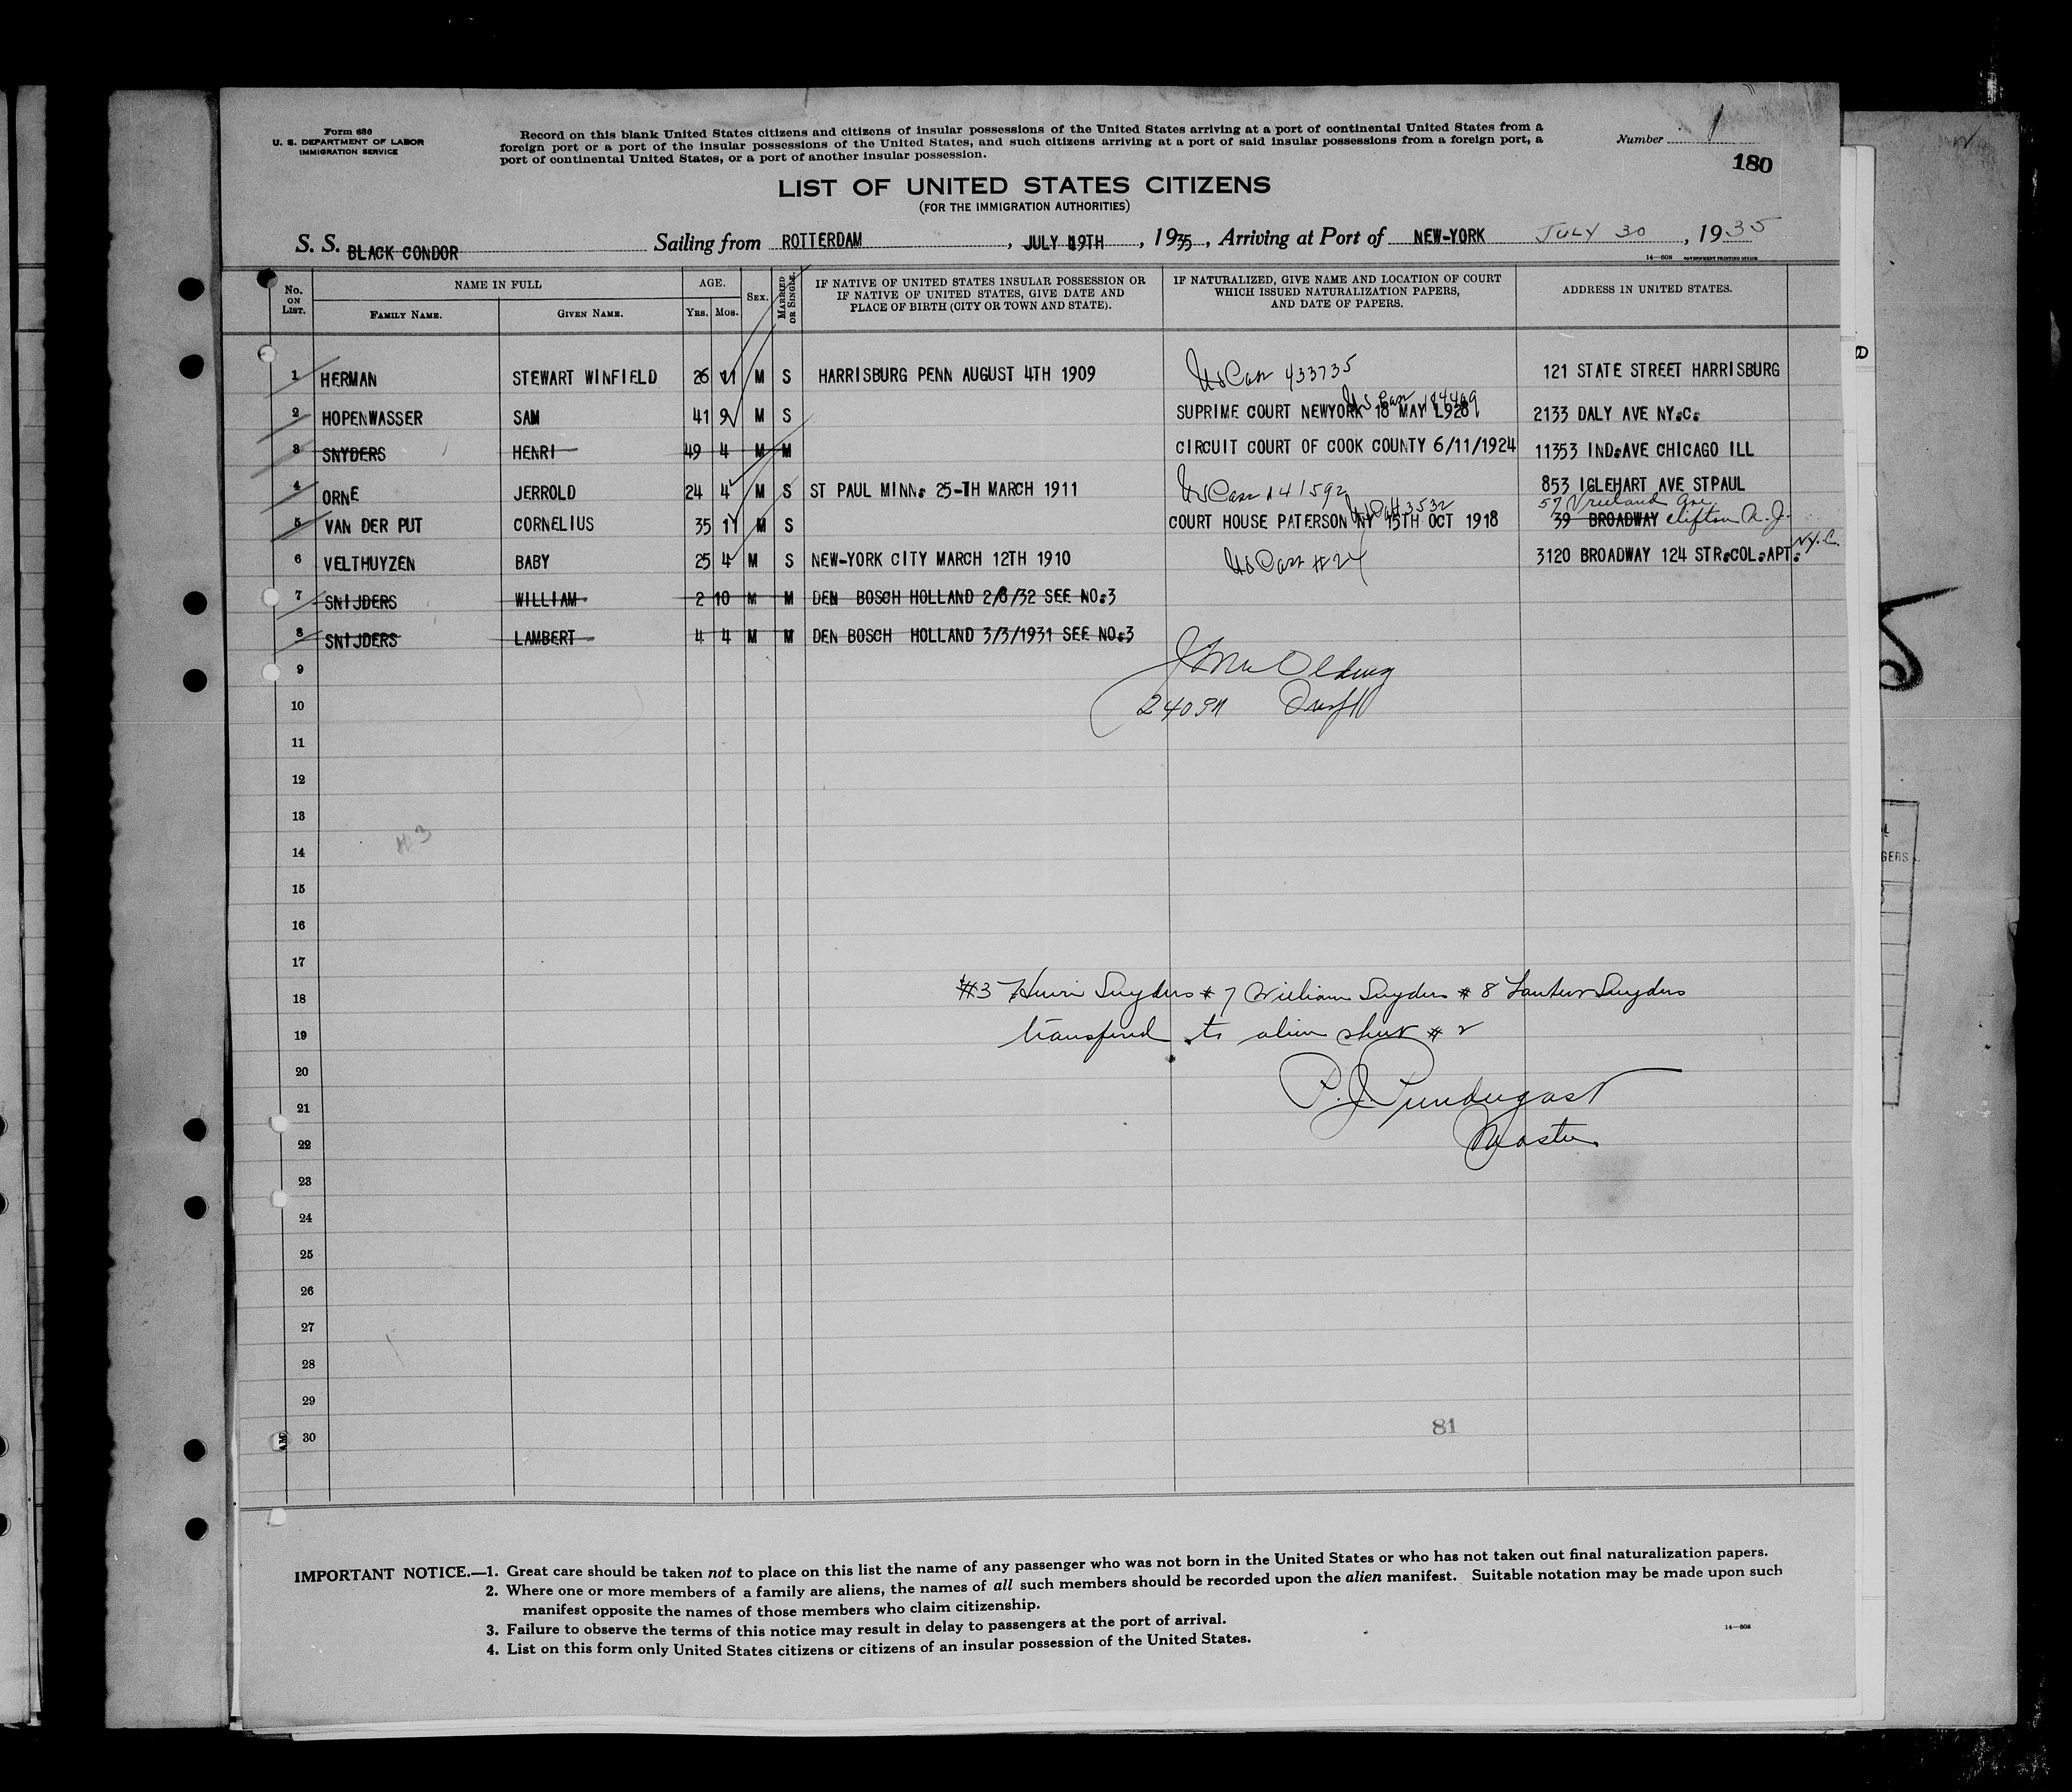 Form 630
U. S. DEPARTMENT OF LABOR
IMMIGRATION SERVICE
Record on this blank United States citizens and citizens of insular possessions of the United States arriving at a port of continental United States from a
foreign port or a port of the insular possessions of the United States, and such citizens arriving at a port of said insular possessions from a foreign port, a
port of continental United States, or a port of another insular possession.
Number 1
180
LIST OF UNITED STATES CITIZENS
(FOR THE IMMIGRATION AUTHORITIES)
S. S. BLACK CONDOR Sailing from ROTTERDAM , JULY 19TH , 1935 , Arriving at Port of NEW-YORK JULY 30 , 1935
14—608 GOVERNMENT PRINTING OFFICE
No. ON LIST. NAME IN FULL AGE. SEX. MARRIED OR SINGLE. IF NATIVE OF UNITED STATES INSULAR POSSESSION OR IF NATIVE OF UNITED STATES, GIVE DATE AND PLACE OF BIRTH (CITY OR TOWN AND STATE). IF NATURALIZED, GIVE NAME AND LOCATION OF COURT WHICH ISSUED NATURALIZATION PAPERS, AND DATE OF PAPERS. ADDRESS IN UNITED STATES.
FAMILY NAME. GIVEN NAME. YRS. MOS.
1 HERMAN STEWART WINFIELD 26 11 M S HARRISBURG PENN AUGUST 4TH 1909 433735 121 STATE STREET HARRISBURG
2 HOPENWASSER SAM 41 9 M S SUPRIME COURT NEWYORK 18 MAY L928 2133 DALY AVE NY.C.
3 SNYDERS HENRI 49 4 M M CIRCUIT COURT OF COOK COUNTY 6/11/1924 11353 IND.AVE CHICAGO ILL
4 ORNE JERROLD 24 4 M S ST PAUL MINN. 25-TH MARCH 1911 141592 853 IGLEHART AVE STPAUL
57 Vreeland Ave
5 VAN DER PUT CORNELIUS 35 11 M S COURT HOUSE PATERSON NY 15TH OCT 1918 39 BROADWAY Clifton N.J.
6 VELTHUYZEN BABY 25 4 M S NEW-YORK CITY MARCH 12TH 1910 3120 BROADWAY 124 STR.COL.APT. N.Y.C.
7 SNIJDERS WILLIAM 2 10 M M DEN BOSCH HOLLAND 2/8/32 SEE NO.3
8 SNIJDERS LAMBERT 4 4 M M DEN BOSCH HOLLAND 3/3/1931 SEE NO.3
9
10
11
12
13
14
15
16
17
18 #3 Henri Snyders # 7 William Snyders # 8 Snyders
19 transferred to alien sheet # 2
20
21
22 Master
23
24
25
26
27
28
29
81
30
IMPORTANT NOTICE.—1. Great care should be taken not to place on this list the name of any passenger who was not born in the United States or who has not taken out final naturalization papers.
2. Where one or more members of a family are aliens, the names of all such members should be recorded upon the alien manifest. Suitable notation may be made upon such
manifest opposite the names of those members who claim citizenship.
3. Failure to observe the terms of this notice may result in delay to passengers at the port of arrival.
4. List on this form only United States citizens or citizens of an insular possession of the United States.
14—608